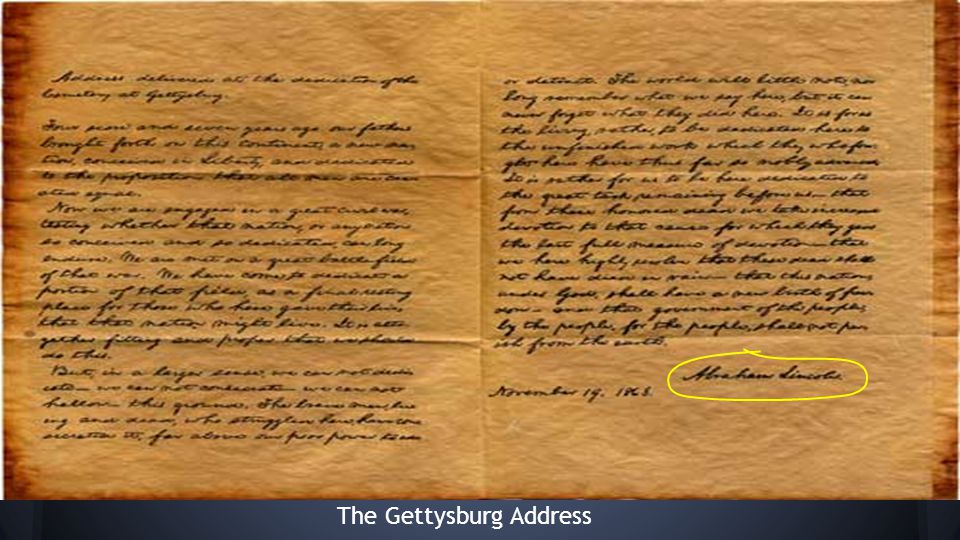 Address delivered at the dedication of the
Cemetery at Gettysburg.
Four score and seven years ago our fathers
brought forth on this continent, a new na-
tion, conceived in Liberty, and dedicated
to the proposition that all men are cre-
ated equal.
Now we are engaged in a great civil war,
testing whether that nation, or any nation
so conceived and so dedicated, can long
endure. We are met on a great battle-field
of that war. We have come to dedicate a
portion of that field, as a final resting
place for those who here gave their lives,
that that nation might live. It is alto-
gether fitting and proper that we should
do this.
But, in a larger sense, we can not dedi-
cate— we can not consecrate— we can not
hallow— this ground. The brave men, liv-
ing and dead, who struggled here, have con-
secrated it, far above our poor power to add
or detract. The world will little note, nor
long remember what we say here, but it can
never forget what they did here. It is for us
the living, rather, to be dedicated here to
the unfinished work which they who fou-
ght here have thus far so nobly advanced.
It is rather for us to be here dedicated to
the great task remaining before us— that
from these honored dead we take increased
devotion to that cause for which they gave
the last full measure of devotion— that
we here highly resolve that these dead shall
not have died in vain— that this nation,
under God, shall have a new birth of free-
dom— and that government of the people,
by the people, for the people, shall not per-
ish from the earth.
Abraham Lincoln.
November 19, 1863.
The Gettysburg Address